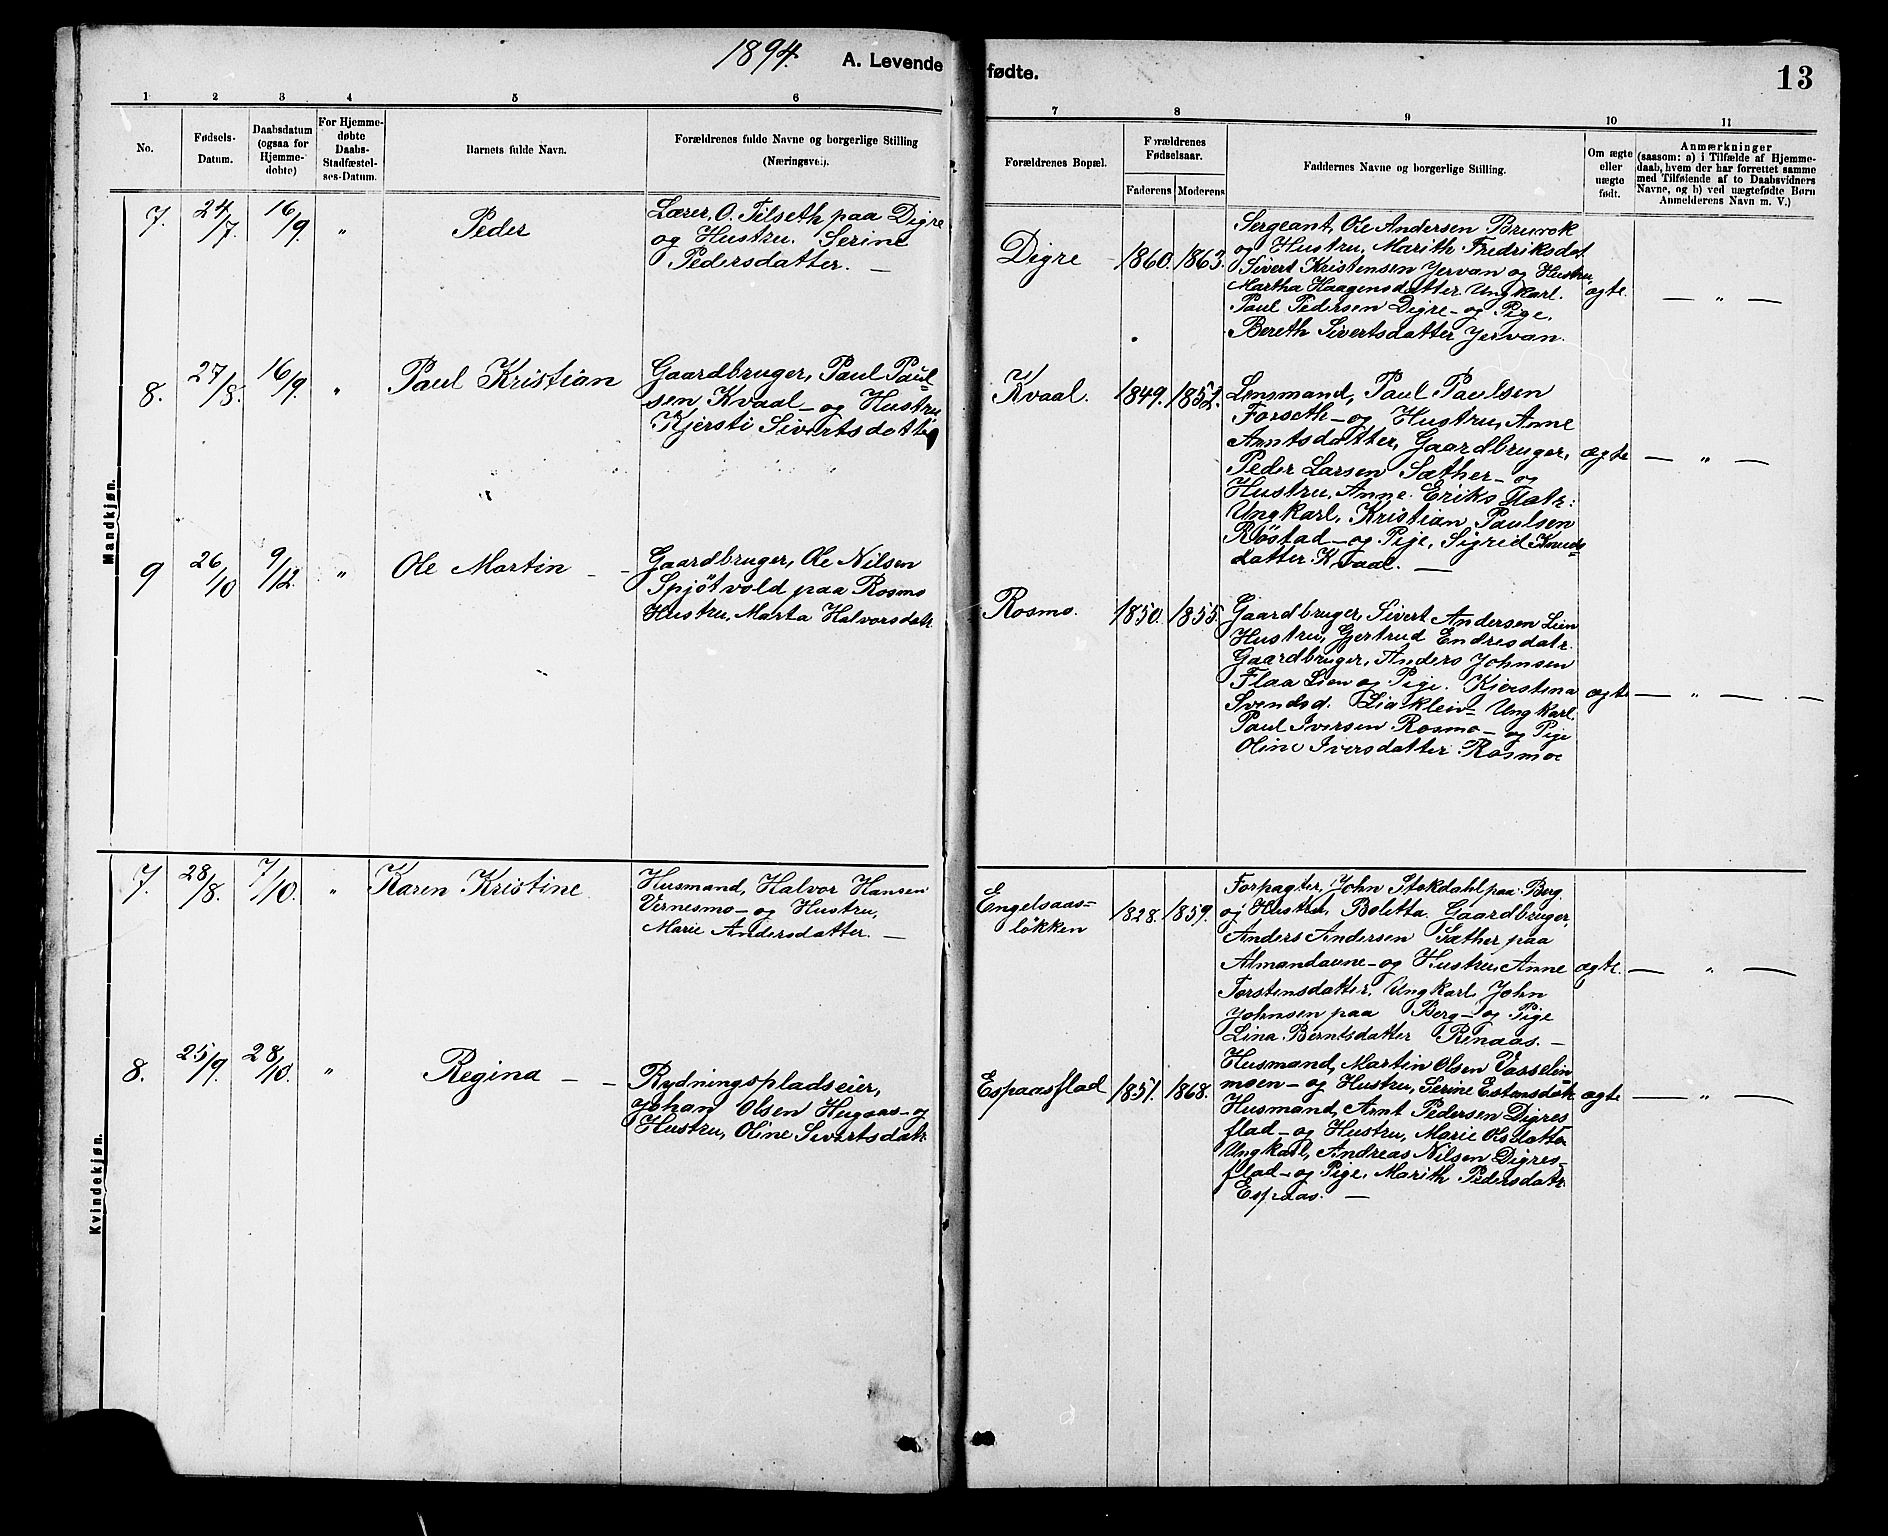 1894. A. Levende fødte. 13
1 2 3 4 5 6 7 8 9 10 11
No.
Fødsels-
Datum.
Daabsdatum
(ogsaa for
Hjemme-
døbte)
For Hjemme-
døbte
Daabs-
Stadfæstel-
ses-Datum.
Barnets fulde Navn.
Forældrenes fulde Navne og borgerlige Stilling
(Næringsvei).
Forældrenes Bopæl.
Forældrenes
Fødselsaar.
Faderens Moderens
Faddernes Navne og borgerlige Stilling.
Om ægte
eller
uægte
født.
Anmærkninger
(saasom: a) i Tilfælde af Hjemme-
daab, hvem der har forrettet samme
med Tilføiende af to Daabsvidners
Navne, og b) ved uægtefødte Børn
Anmelderens Navn m. V.)
Mandkjøn.
7. 24/7. 16/9. " Peder
Lærer, O. Tilseth paa Digre
og Hustru. Serine
Pedersdatter. —
Digre 1860. 1863.
Sergeant, Ole Andersen Bruvok
og Hustru, Marith Fredriksdat.
Sivert Kristensen Jervan og Hustru,
Martha Haagensdatter. Ungkarl.
Paul Pedersen Digre - og Pige,
Bereth Sivertsdatter Jervan.
ægte. — " —
8. 27/8. 16/9. " Paul Kristian
Gaardbruger, Paul Paul-
sen Kvaal - og Hustru
Kjersti Sivertsdatter
Kvaal. 1849. 1852.
Lensmand, Paul Paulsen
Forseth - og Hustru, Anne
Arntsdatter, Gaardbruger,
Peder Larsen Sæther - og
Hustru, Anne Eriks Datr:
Ungkarl, Kristian Paulsen
Røstad - og Pige, Sigrid Knuds-
datter Kvaal. —
ægte — " —
9 26/10 9/12. " Ole Martin - -
Gaardbruger, Ole Nilsen
Spjøtvold paa Rosmo
Hustru, Marta Halvorsdatr.
Rosmo. 1850. 1855.
Gaardbruger, Sivert Andersen Lien
Hustru, Gjertrud Endresdatr.
Gaardbruger, Anders Johnsen
Flaa Lien og Pige. Kjerstina
Svendsd. Liaklein - Ungkarl.
Paul Iversen Rosmo - og Pige
Oline Iversdatter Rosmo
ægte — " — —
Kvindekjøn.
7. 28/8. 7/10. " Karen Kristine
Husmand, Halvor Hansen
Vernesmo - og Hustru,
Marie Andersdatter. —
Engelsaas-
løkken 1828. 1859.
Forpagter, John Stokdahl paa Berg
og Hustru, Boletta. Gaardbruger,
Anders Andersen Sæther paa
Almandavne - og Hustru, Anne
Torstensdatter, Ungkarl, John
Johnsen paa Berg - og Pige
Lina Berntsdatter Renaas. —
ægte. — " —
8. 25/9. 28/10. " Regina - -
Rydningspladseier,
Johan Olsen Hugaas - og
Hustru, Oline Sivertsdatr
Espaasflad 1851. 1868.
Husmand, Martin Olsen Vasselin-
moen - og Hustru, Serine Estensdatr.
Husmand, Arnt Pedersen Digres-
flad - og Hustru, Marie Olsdatter
Ungkarl, Andreas Nilsen Digres-
flad - og Pige, Marith Pedersdatr.
Espaas. —
ægte — " —